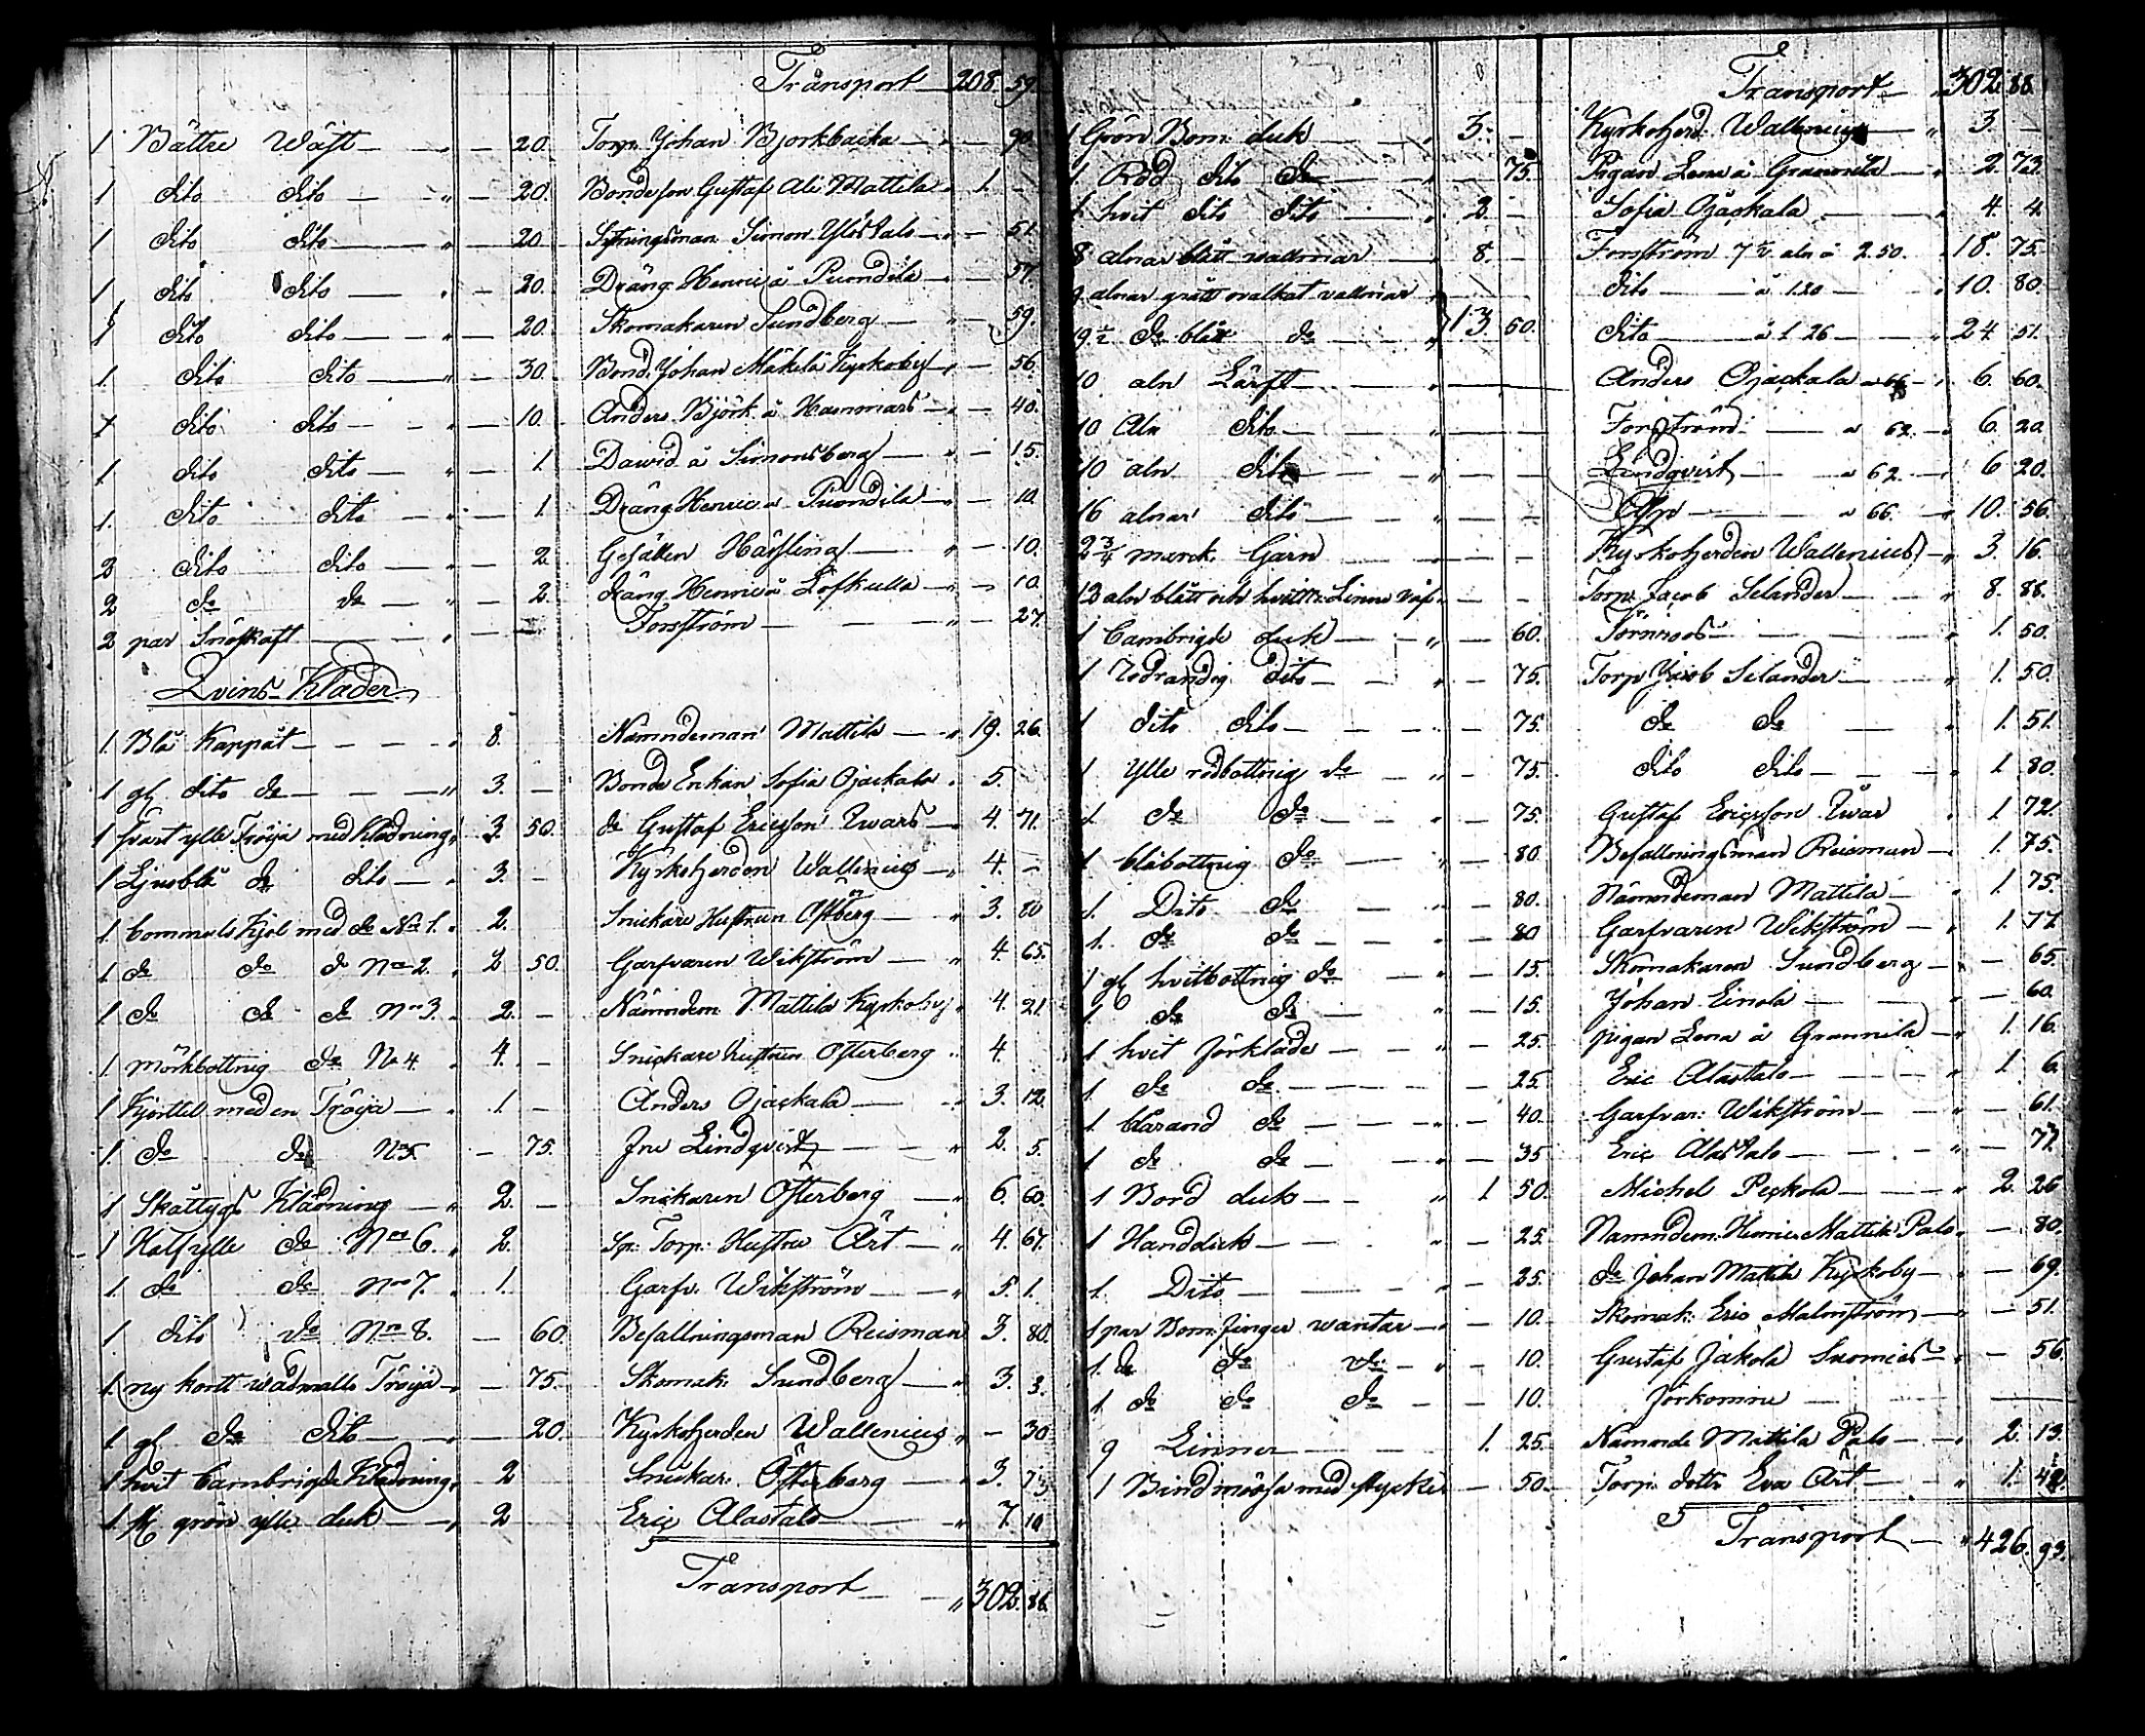 Transport 208. 59.
1 Bättre Wäst — " — 20. Torp. Johan Bjorkbacka — " — 90.
1 dito dito — " — 20. Bondeson Gustaf Ali Mattila " 1. –
1 dito dito — " — 20 Sytningsman Simon Ylöstalo — " — 51
1 dito dito — " — 20. Dräng Henric å Puondila — " — 57.
1 dito dito — " — 20. Skomakaren Sundberg — " — 59.
1. dito dito — " — 30. Bond. Johan Mäkilä Kyrkoby — " — 56.
1 dito dito — " — 10. Anders Björk å Hammars — " — 40.
1 dito dito — " — 1. Dawid å Simonsberg — " — 15.
1. dito dito — " — 1. Dräng Henric å Puondila — " — 10.
2 dito dito — " — 2. Gesällen Häfling — " — 10.
2 do do — " — 2. dräng Henric å Löfkulla — " — 10
2 par Snöskaft — " — Forsström — " — 27.
Qvins Kläder
1. Blå Kappåt — " 8. Nämndeman Mattila — " 19. 26.
1 gl. dito do — " 3. – Bonde Enkan Sofia Ojackala " 5.
1 svart ylle Tröija med Klädning " 3. 50. do Gustaf Ericsson Qwars — 4. 71.
1 Ljusblå do dito — " 3. – Kyrkoherden Wallenius — " 4. –
1. bommuls kjol med do No 1. " 2. Snickare Hustrun Östberg — " 3. 80
1 do do do No 2. " 2 50. Garfvaren Wikström — " 4. 65.
1. do do do No 3. " 2. – Nämndem. Mattila Kyrkoby " 4. 21
1. mörkbottnig do No 4. " 4. – Snickare hustrun Österberg " 4.
1 Kjorttel med en Tröija — " 1. – Anders Ojackala — " 3. 12.
1. do do No 5. – 75. Fru Lindqvist — " 2. 5.
1 Skåttygs Klädning — " 2. – Snickaren Österberg — " 6. 60.
1 Halfylle do No 6. " 2. Sp: Torp: Hustru Ärt — " 4. 67.
1. do do No 7. " 1. Garfv. Wikström — " 5. 1.
1. dito do No 8. — 60. Befallningsman Reisman 3. 80.
1. ny kortt wadmalls Tröija " — 75. Skomak: Sundberg — " 3. 3.
1. gl. do dito — " 20. Kyrkoherden Wallenius " — 30
1 hvit Cambrigde Klädning " 2 Snickar: Österberg " 3. 73
1 st. grön ylle duk — " 2 Eric Alastalo — " 7. 10
Transport — " 302. 88.
Transport — " 302. 88.
1 Grön Bom. duk — " 3. – Kyrkoherd. Wallenius — " 3. –
1. Röd dito do — " — 75. Pigan Lena å Grannila — " 2. 73.
1 hvit dito dito — " 2. – Sofia Ojackala — " 4. 4.
8 alnar blått wallmar — " 8. – Forsström 7 ½ aln á 2.50. " 18. 75.
9 alnar grått ovalkat vallmar " dito — á 1.20 — " 10. 80.
19 ½ do blått do — " 13. 60. dito — á 1 26 — " 24 51.
10 aln Lärft — " — Anders Ojackala á 66 — " 6. 60.
10 Aln dito — " — Forsström — á 62. — " 6. 20.
10 aln dito — " — Lindqvist — á 62. — " 6 20.
16 alnar dito — " — — á 66. — " 10. 56.
2 ¾ marck Garn — — Kyrkoherden Wallenius — " 3. 16.
13 aln blått och hvitt Linne — — Torp. Jacob Selander — " 8. 88.
1 Cambrigde duk — " — 60. Törnroos — " 1. 50.
1 rodrandig dito — " — 75. Torp Jacob Selander — " 1. 50.
1 dito dito — " — 75. do do — " 1. 51.
1 Ylle rödbottnig do — " — 75. dito dito — " 1 80.
1 do do — " — 75. Gustaf Ericsson Qwar " 1 72.
1 blåbottnig do — " — 80. Befallningsman Reisman — " 1. 75.
1. Dito do — " — 80. Nämndeman Mattila — " 1. 75.
1. do do — " — 80 Garfvaren Wikström — " 1. 77.
1 gl. hvitbottnig do — " — 15. Skomakaren Sundberg — " — 65.
1. do do — " — 15. Johan Einola — " — 60.
1 hvit förkläde — " — 25. pigan Lena å Grannila — " 1. 16.
1 do do — — 25. Eric Alastalo — " 1. 6.
1 blårand do — — 40. Garfvar: Wikström — " — 61.
1 do do — " — 35 Eric Alastalo — " — 77.
1 Bord duk — " 1 50. Michel Peckola — " 2. 26
1 Handduk — " — 25. Namndem. Henric Mattila Palo " — 80.
1. Dito — " — 25. do Johan Mattila Kyrkoby — " — 69.
1 par Bom. finger wantar — " — 10. Skomak: Eric Malmström — " — 51.
1. do do do — " — 10. Gustaf Jakola Snomias — " — 56.
1 do do do — — 10. förkomne — —
9 Linner — 1. 25. Nämnde Mattila Palo — " 2. 13.
1 Bindmössa med stycke — 50. Torp: dottr Eva Ärt — " 1. 42.
Transport — " 426. 93.